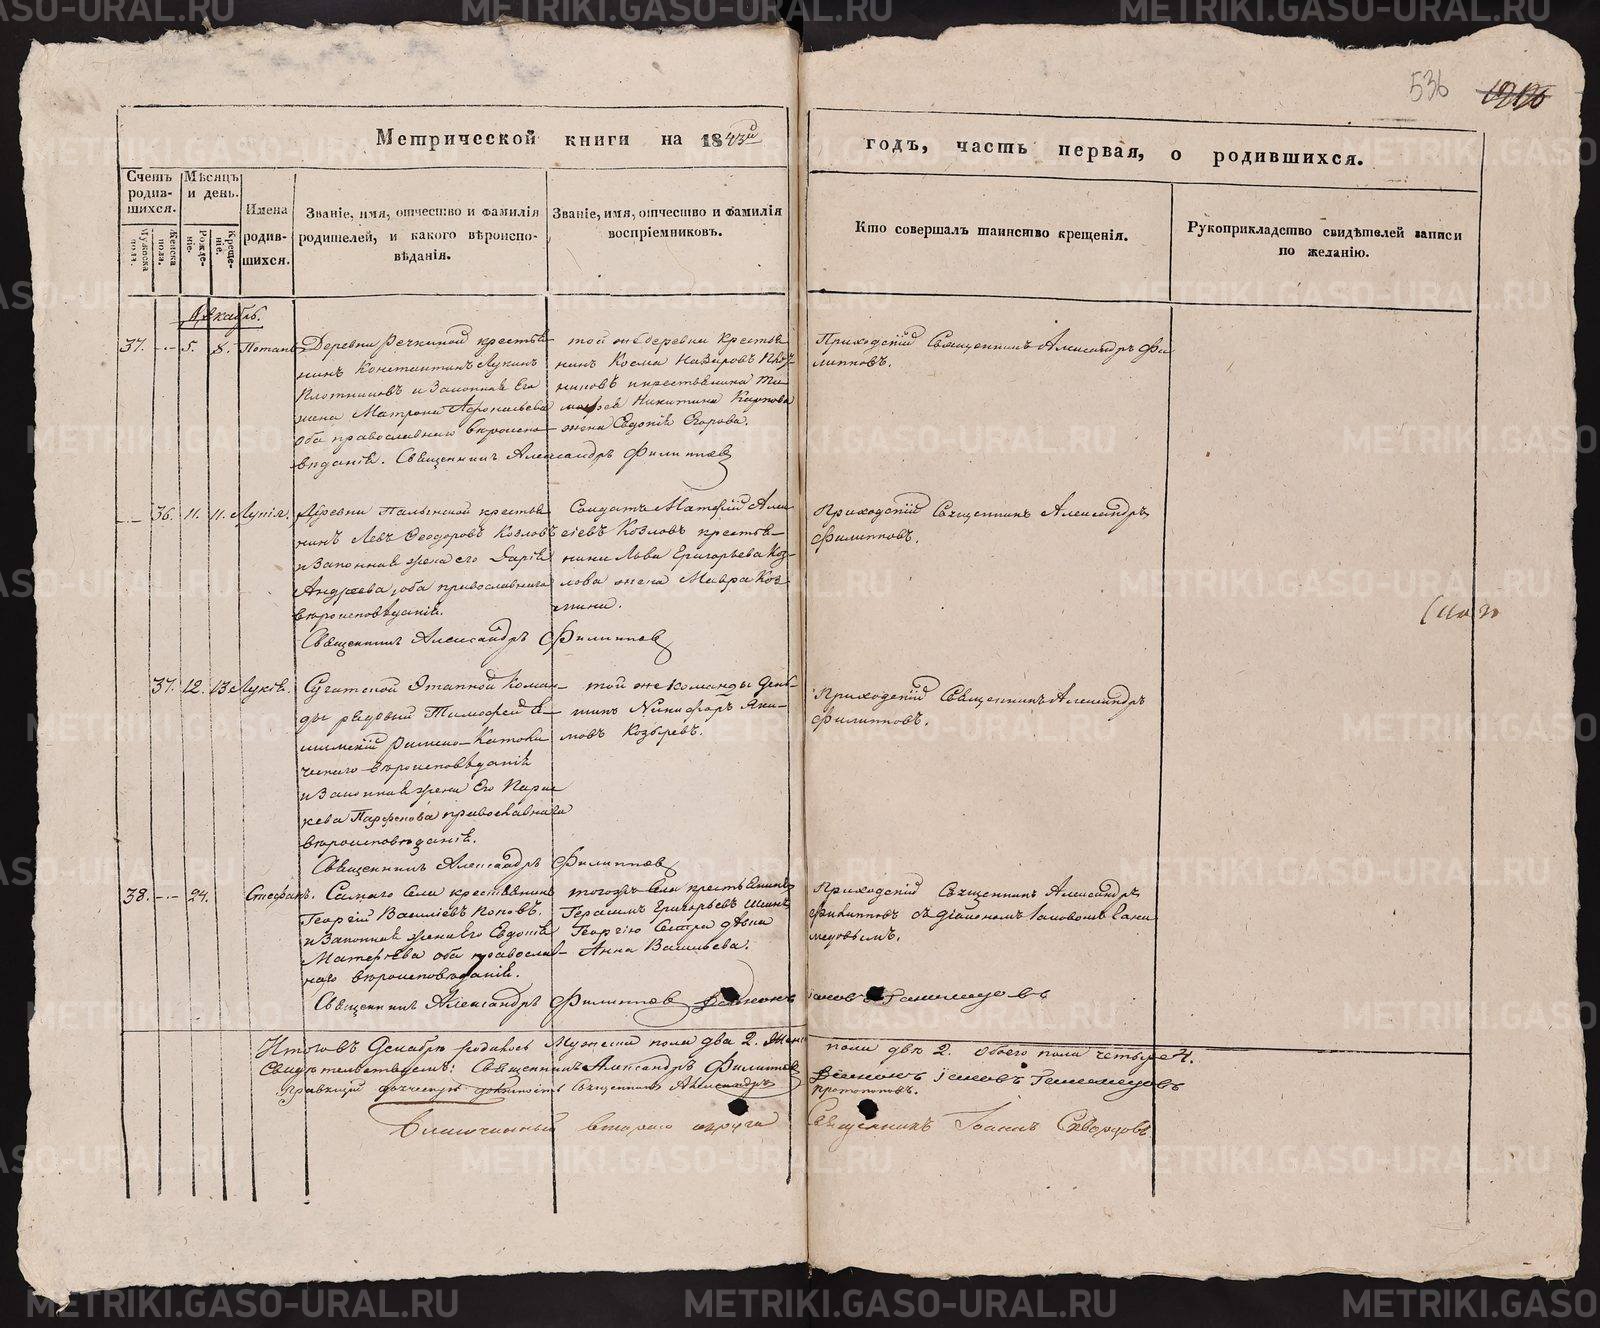 536
Метрической книги на 1843й
годъ, часть первая, о родившихся.
Счетъ родившихся.
Мужеска пола.
Женска пола.
Мѣсяцъ и день.
Рождение.
Крещение.
Имена родившихся.
Званіе, имя, отчество и фамилія родителей, и какого вѣроисповѣданія.
Званіе, имя, отчество и фамилія воспріемниковъ.
Кто совершалъ таинство крещенія.
Рукоприкладство свидѣтелей записи по желанію.
Декабрь.
37. 5. 8.
Деревни Речкиной крестья-
нинъ Константинъ Лукинъ
Плотниковъ и Законная Его
жена Матрона
оба православнаго вѣроиспо-
вѣданія. Священникъ Александръ Филиппов
той же деревни Крестья-
нинъ Косма Назаровъ
и крестьянина Ти-
мофея Никитина Карпова
жена Евдокія Егорова.
Приходскій Священникъ Александръ Фи-
липповъ.
36. 11. 11. Лукія.
Деревни крестья-
нинъ Левъ Ѳеодоровъ Козловъ
и Законная жена его Дарія
Андреева, оба православнаго
вѣроисповѣданія.
Священникъ Александръ Филиппов
Солдатъ Матфій Алек-
сіевъ Козловъ крестья-
нина Льва Григорьева Коз-
лова жена Мавра Коз-
мина.
Приходскій Священникъ Александръ
Филипповъ.
37. 12. 13
Сугатской Этапной Коман-
ды рядовый Тимофей
Римско-Католи-
ческаго вѣроисповѣданія
и Законная жена Его Параc-
кева Парфенова православнаго
вѣроисповѣданія.
Священникъ Александръ Филиппов
той же Команды День-
щикъ Никифоръ Яки-
мовъ Козыревъ.
Приходскій Священникъ Александръ
Филипповъ.
38. 24. Стефанъ.
Самаго Села крестьянинъ
Георгій Василіевъ Поповъ.
и Законная жена Его Евдокія
Матфѣева оба православ-
наго вѣроисповѣданія.
Священникъ Александръ Филиппов Діаконъ Іаковъ Ганимедовъ
тогожъ Села крестьянинъ
Герасимъ Григорьевъ
Георгію Сестра дѣвка
Анна Васильева.
Приходскій Священникъ Александръ
Филипповъ съ Діакономъ Іаковомъ Гани-
медовымъ.
Итого въ Декабрѣ родилось Мужеска пола два 2. Женска пола двѣ 2. Обоего пола четыре 4.
Свидѣтельствуемъ: Священникъ Александръ Филиппов Діаконъ Іаковъ Ганимедовъ
Правящій должность Священникъ Александръ
Благочинный втораго округа Священникъ Іоаннъ Скворцовъ
METRIKI.GASO-URAL.RU